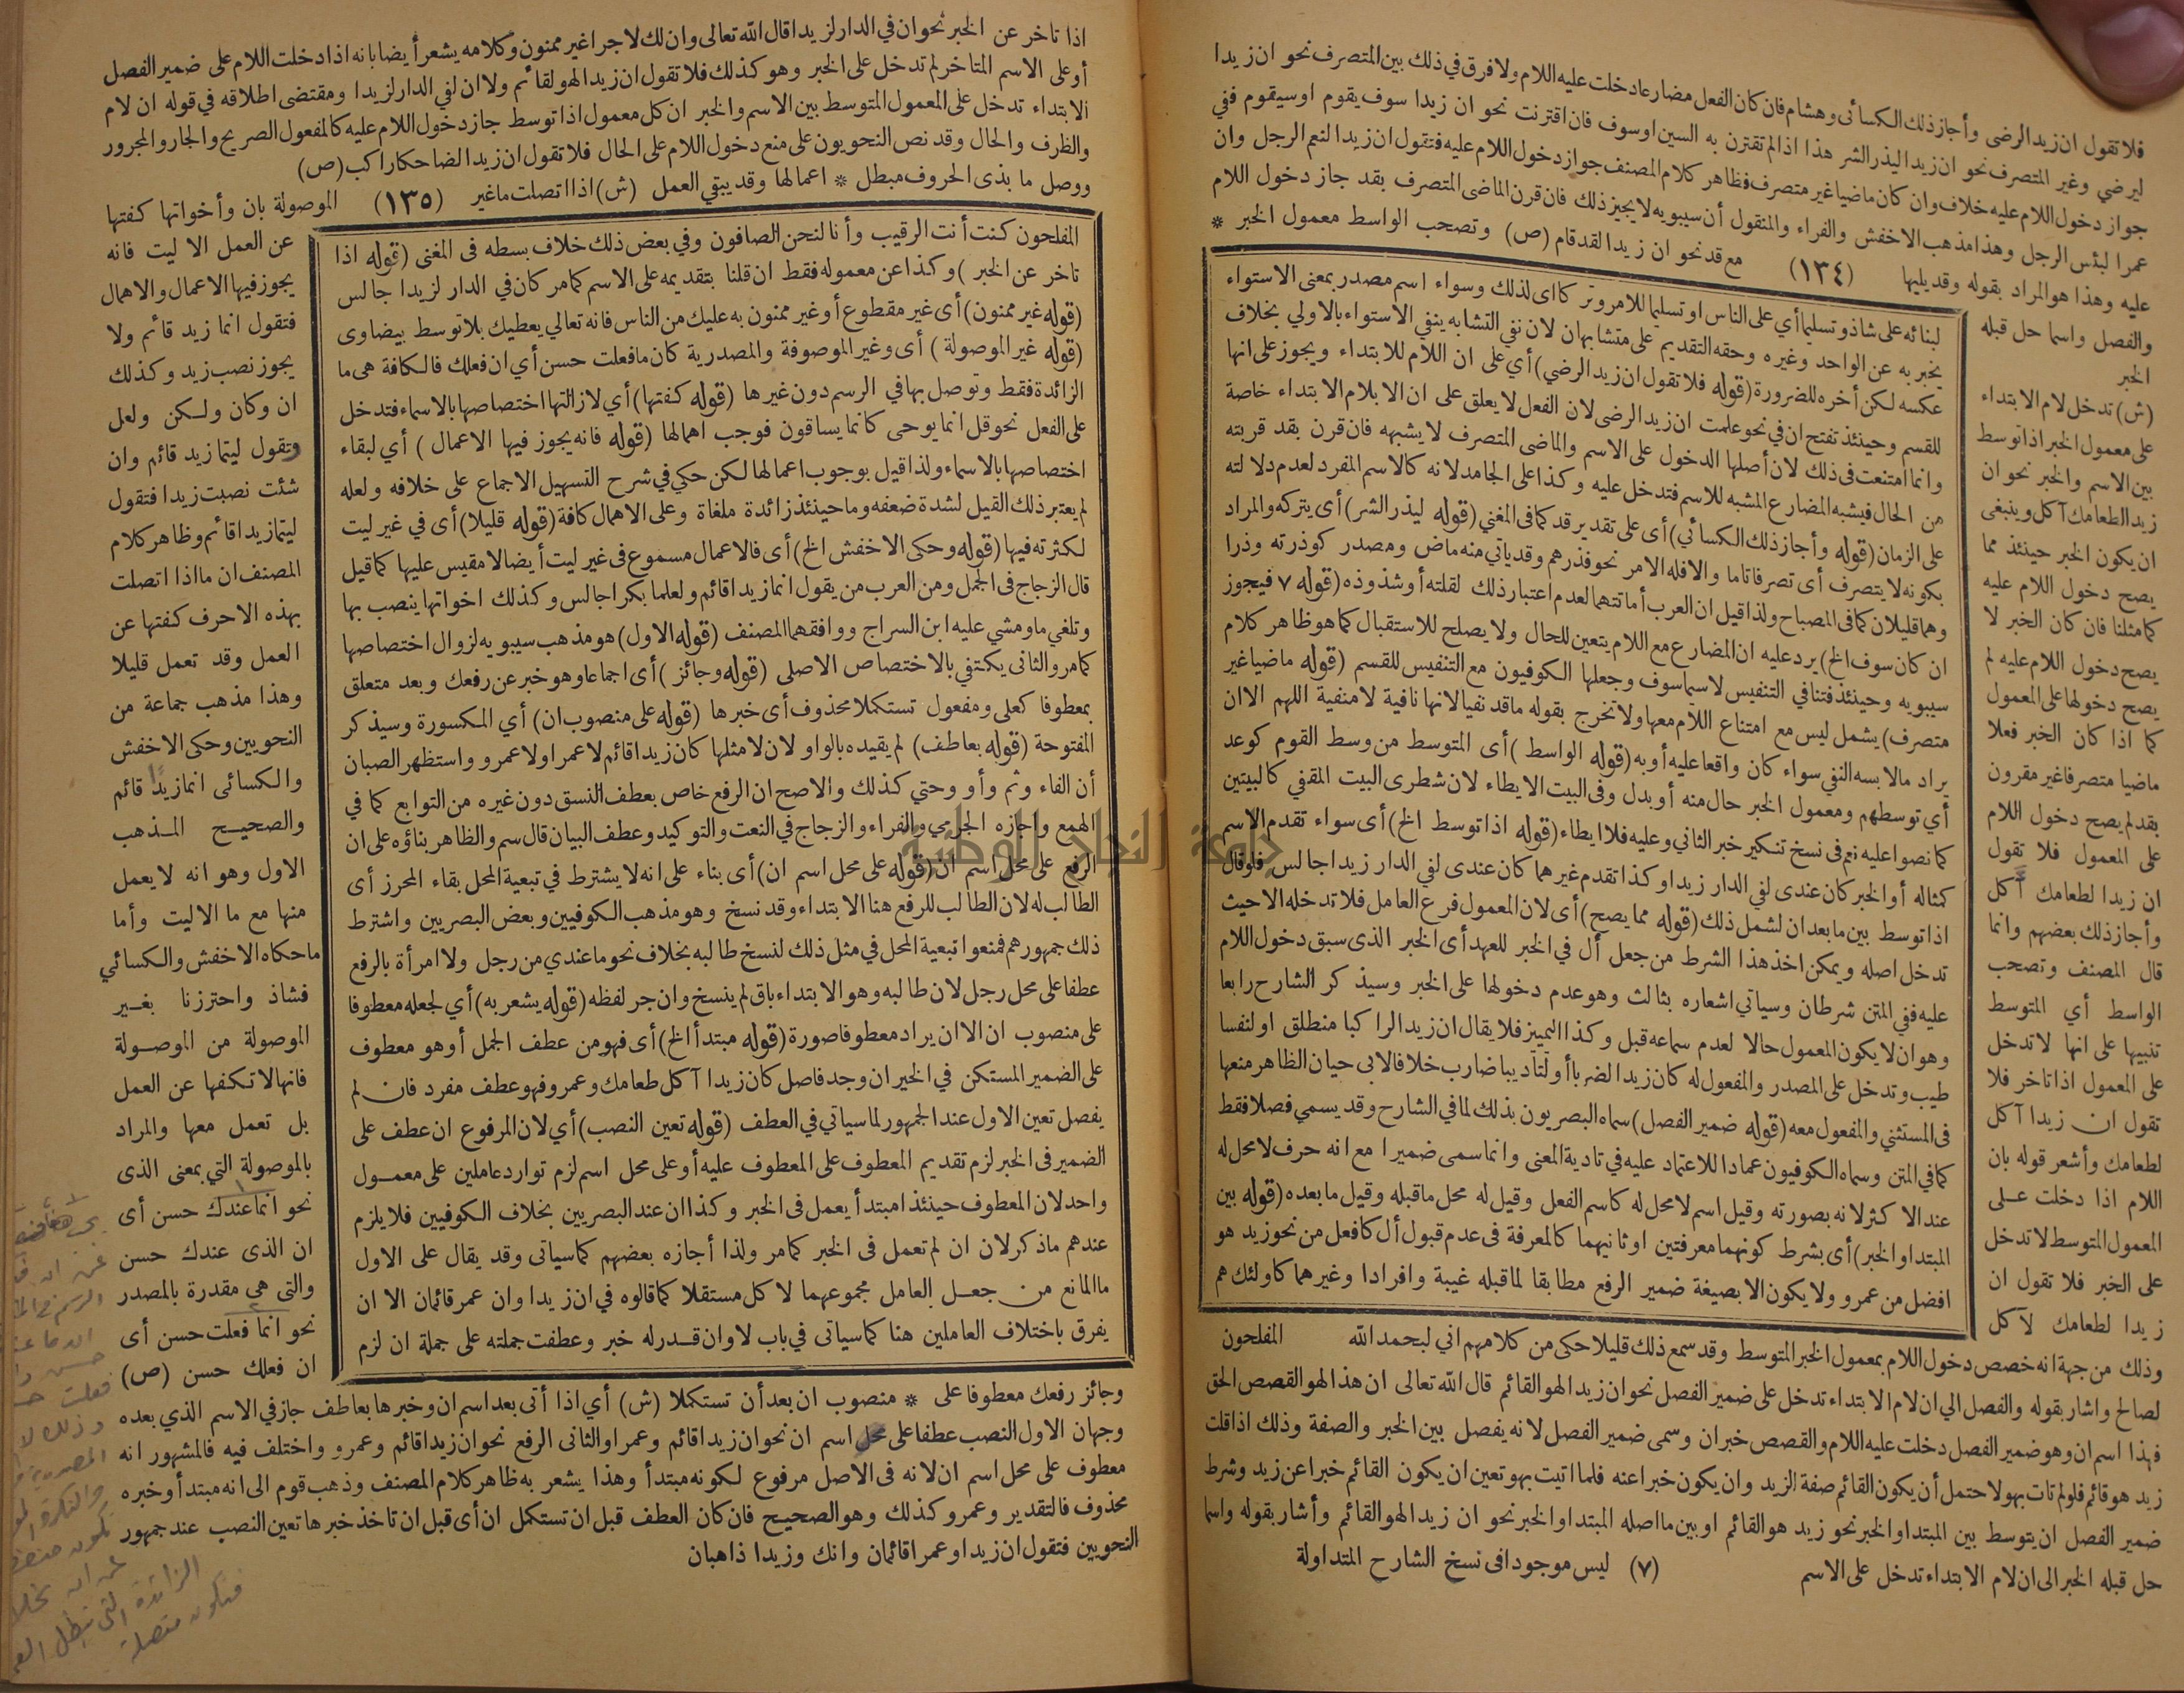 فلا تقول ان زيد الرضى وأجاز ذلك الكسائى وهشام فان كان الفعل مضارعا دخلت عليه اللام ولا فرق في ذلك بين المتصرف نحو ان زيدا
ليرضي وغير المتصرف نحو ان زيدا ليذر الشر هذا اذا لم تقترن به السين او سوف فان اقترنت نحو ان زيدا سوف يقوم او سيقوم ففي
جواز دخول اللام عليه خلاف وان كان ماضيا غير متصرف فظاهر كلام المصنف جواز دخول اللام عليه فتقول ان زيدا لنعم الرجل وان
عمرا لبئس الرجل وهذا مذهب الاخفش والفراء والمنقول أن سيبويه لا يجيز ذلك فان قرن الماضى المتصرف بقد جاز دخول اللام
عليه وهذا هو المراد بقوله وقد يليها (١٣٤) مع قد نحو ان زيدا لقد قام (ص) وتصحب الواسط معمول الخبر *
والفصل واسما حل قبله
الخبر
(ش) تدخل لام الابتداء
على معمول الخبر اذا توسط
بين الاسم والخبر نحو ان
زيدا لطعامك آكل وينبغى
ان يكون الخبر حينئذ مما
يصح دخول اللام عليه
كما مثلنا فان كان الخبر لا
يصح دخول اللام عليه لم
يصح دخولها على المعمول
كما اذا كان الخبر فعلا
ماضيا متصرفا غير مقرون
بقد لم يصح دخول اللام
على المعمول فلا تقول
ان زيدا لطعامك آكل
وأجاز ذلك بعضهم وانما
قال المصنف وتصحب
الواسط أي المتوسط
تنبيها على انها لا تدخل
على المعمول اذا تاخر فلا
تقول ان زيدا آكل
لطعامك وأشعر قوله بان
اللام اذا دخلت على
المعمول المتوسط لا تدخل
على الخبر فلا تقول ان
زيدا لطعامك لآكل
لبنائه على شاذ وتسليما أي على الناس او تسليما للامر وتركا اى لذلك وسواء اسم مصدر بمعنى الاستواء
يخبر به عن الواحد وغيره وحقه التقديم على متشابهان لان نفي التشابه ينفي الاستواء بالاولي بخلاف
عكسه لكن أخره للضرورة (قوله فلا تقول ان زيد الرضي) أي على ان اللام للابتداء ويجوز على انها
للقسم وحينئذ تفتح ان في نحو علمت ان زيد الرضى لان الفعل لا يعلق على ان الا بلام الابتداء خاصة
وانما امتنعت فى ذلك لان أصلها الدخول على الاسم والماضى المتصرف لا يشبهه فان قرن بقد قربته
من الحال فيشبه المضارع المشبه للاسم فتدخل عليه وكذا على الجامد لانه كالاسم المفرد لعدم دلالته
على الزمان (قوله وأجاز ذلك الكسائي) أى على تقدير قد كما فى المغني (قوله ليذر الشر) أى يتركه والمراد
بكونه لا يتصرف أى تصرفا تاما والا فله الامر نحو فذرهم وقد ياتي منه ماض ومصدر كوذرته وذرا
وهما قليلان كما فى المصباح ولذا قيل ان العرب أماتتهما لعدم اعتبار ذلك لقلته أو شذوذه (قوله ٧ فيجوز
ان كان سوف الخ) يرد عليه ان المضارع مع اللام يتعين للحال ولا يصلح للاستقبال كما هو ظاهر كلام
سيبويه وحينئذ فتنافي التنفيس لاسيما سوف وجعلها الكوفيون مع التنفيس للقسم (قوله ماضيا غير
متصرف) يشمل ليس مع امتناع اللام معها ولا تخرج بقوله ما قد نفيا لانها نافية لا منفية اللهم الا ان
يراد ما لابسه النفي سواء كان واقعا عليه أو به (قوله الواسط) أى المتوسط من وسط القوم كوعد
أي توسطهم ومعمول الخبر حال منه أو بدل وفى البيت الايطاء لان شطرى البيت المقفي كالبيتين
كما نصوا عليه نعم فى نسخ تنكير خبر الثاني وعليه فلا ايطاء (قوله اذا توسط الخ) أى سواء تقدم الاسم
كمثاله أو الخبر كان عندى لفي الدار زيدا وكذا تقدم غيرهما كان عندى لفي الدار زيدا جالس فلو قال
اذا توسط بين ما بعد ان لشمل ذلك (قوله مما يصح) أى لان المعمول فرع العامل فلا تدخله الا حيث
تدخل اصله ويمكن اخذ هذا الشرط من جعل أل في الخبر للعهد أى الخبر الذى سبق دخول اللام
عليه ففي المتن شرطان وسياتي اشعاره بثالث وهو عدم دخولها على الخبر وسيذكر الشارح رابعا
وهو ان لا يكون المعمول حالا لعدم سماعه قبل وكذا التمييز فلا يقال ان زيدا لراكبا منطلق او لنفسا
طيب وتدخل على المصدر والمفعول له كان زيدا لضربا أو لتأديبا ضارب خلافا لابى حيان الظاهر منعها
فى المستثني والمفعول معه (قوله ضمير الفصل) سماه البصريون بذلك لما في الشارح وقد يسمي فصلا فقط
كما في المتن وسماه الكوفيون عمادا للاعتماد عليه في تادية المعنى وانما سمى ضميرا مع انه حرف لا محل له
عند الا كثر لانه بصورته وقيل اسم لا محل له كاسم الفعل وقيل له محل ما قبله وقيل ما بعده (قوله بين
المبتدا والخبر) أى بشرط كونهما معرفتين او ثانيهما كالمعرفة فى عدم قبول أل كافعل من نحو زيد هو
افضل من عمرو ولا يكون الا بصيغة ضمير الرفع مطابقا لما قبله غيبة وافرادا وغيرهما كاولئك هم
المفلحون
وذلك من جهة انه خصص دخول اللام بمعمول الخبر المتوسط وقد سمع ذلك قليلا حكى من كلامهم اني لبحمد الله
لصالح واشار بقوله والفصل الي ان لام الابتداء تدخل على ضمير الفصل نحو ان زيد الهو القائم قال الله تعالى ان هذا لهو القصص الحق
فهذا اسم ان وهو ضمير الفصل دخلت عليه اللام والقصص خبر ان وسمى ضمير الفصل لانه يفصل بين الخبر والصفة وذلك اذا قلت
زيد هو قائم فلو لم تات بهو لاحتمل أن يكون القائم صفة الزيد وان يكون خبرا عنه فلما اتيت بهو تعين ان يكون القائم خبرا عن زيد وشرط
ضمير الفصل ان يتوسط بين المبتدا والخبر نحو زيد هو القائم او بين ما اصله المبتدا والخبر نحو ان زيدا لهو القائم وأشار بقوله واسما
حل قبله الخبر الى ان لام الابتداء تدخل على الاسم (٧) ليس موجودا فى نسخ الشارح المتداولة
اذا تاخر عن الخبر نحو ان في الدار لزيدا قال الله تعالى وان لك لاجرا غير ممنون وكلامه يشعر أيضا بانه اذا دخلت اللام على ضمير الفصل
أو على الاسم المتاخر لم تدخل على الخبر وهو كذلك فلا تقول ان زيدا لهو لقائم ولا ان لفي الدار لزيدا ومقتضى اطلاقه في قوله ان لام
الابتداء تدخل على المعمول المتوسط بين الاسم والخبر ان كل معمول اذا توسط جاز دخول اللام عليه كالمفعول الصريح والجار والمجرور
والظرف والحال وقد نص النحويون على منع دخول اللام على الحال فلا تقول ان زيدا لضاحكا راكب (ص)
ووصل ما بذى الحروف مبطل * اعمالها وقد يبقي العمل (ش) اذا اتصلت ما غير (١٣٥) الموصولة بان وأخواتها كفتها
عن العمل الا ليت فانه
يجوز فيها الاعمال والاهمال
فتقول انما زيد قائم ولا
يجوز نصب زيد وكذلك
ان وكان ولكن ولعل
وتقول ليتما زيد قائم وان
شئت نصبت زيدا فتقول
ليتما زيدا قائم وظاهر كلام
المصنف ان ما اذا اتصلت
بهذه الاحرف كفتها عن
العمل وقد تعمل قليلا
وهذا مذهب جماعة من
النحويين وحكى الاخفش
والكسائى انما زيدًا قائم
والصحيح المذهب
الاول وهو انه لا يعمل
منها مع ما الا ليت وأما
ما حكاه الاخفش والكسائي
فشاذ واحترزنا بغير
الموصولة من الموصولة
فانها لا تكفها عن العمل
بل تعمل معها والمراد
بالموصولة التي بمعنى الذى
نحو انما عندك حسن أى
ان الذى عندك حسن
والتى هي مقدرة بالمصدر
نحو انما فعلت حسن أى
ان فعلك حسن (ص)
المفلحون كنت أنت الرقيب وأنا لنحن الصافون وفي بعض ذلك خلاف بسطه فى المغنى (قوله اذا
تاخر عن الخبر) وكذا عن معموله فقط ان قلنا بتقديمه على الاسم كما مر كان في الدار لزيدا جالس
(قوله غير ممنون) أى غير مقطوع أو غير ممنون به عليك من الناس فانه تعالي يعطيك بلا توسط بيضاوى
(قوله غير الموصولة) أى وغير الموصوفة والمصدرية كان ما فعلت حسن أي ان فعلك فالكافة هى ما
الزائدة فقط وتوصل بها في الرسم دون غيرها (قوله كفتها) أي لازالتها اختصاصها بالاسماء فتدخل
على الفعل نحو قل انما يوحى كانما يساقون فوجب اهمالها (قوله فانه يجوز فيها الاعمال) أي لبقاء
اختصاصها بالاسماء ولذا قيل بوجوب اعمالها لكن حكي في شرح التسهيل الاجماع على خلافه ولعله
لم يعتبر ذلك القيل لشدة ضعفه وما حينئذ زائدة ملغاة وعلى الاهمال كافة (قوله قليلا) أى في غير ليت
لكثرته فيها (قوله وحكى الاخفش الخ) أى فالاعمال مسموع فى غير ليت أيضا لا مقيس عليها كما قيل
قال الزجاج فى الجمل ومن العرب من يقول انما زيدا قائم ولعلما بكرا جالس وكذلك اخواتها ينصب بها
وتلغي ما ومشي عليه ابن السراج ووافقهما المصنف (قوله الاول) هو مذهب سيبويه لزوال اختصاصها
كما مر والثانى يكتفي بالاختصاص الاصلى (قوله وجائز) أى اجماعا وهو خبر عن رفعك وبعد متعلق
بمعطوفا كعلى ومفعول تستكملا محذوف أى خبرها (قوله على منصوب ان) أي المكسورة وسيذكر
المفتوحة (قوله بعاطف) لم يقيده بالواو لان لا مثلها كان زيدا قائم لا عمرا ولا عمرو واستظهر الصبان
أن الفاء وثم وأو وحتي كذلك والاصح ان الرفع خاص بعطف النسق دون غيره من التوابع كما في
الهمع واجازه الجرمي والفراء والزجاج في النعت والتوكيد وعطف البيان قال سم والظاهر بناؤه على ان
الرفع على محل اسم ان (قوله على محل اسم ان) أى بناء على انه لا يشترط في تبعية المحل بقاء المحرز أى
الطالب له لان الطالب للرفع هنا الابتداء وقد نسخ وهو مذهب الكوفيين وبعض البصريين واشترط
ذلك جمهورهم فمنعوا تبعية المحل في مثل ذلك لنسخ طالبه بخلاف نحو ما عندي من رجل ولا امرأة بالرفع
عطفا على محل رجل لان طالبه وهو الابتداء باق لم ينسخ وان جر لفظه (قوله يشعر به) أي لجعله معطوفا
على منصوب ان الا ان يراد معطوفا صورة (قوله مبتدأ الخ) أى فهو من عطف الجمل أو هو معطوف
على الضمير المستكن في الخبر ان وجد فاصل كان زيدا آكل طعامك وعمرو فهو عطف مفرد فان لم
يفصل تعين الاول عند الجمهور لما سياتي في العطف (قوله تعين النصب) أي لان المرفوع ان عطف على
الضمير فى الخبر لزم تقديم المعطوف على المعطوف عليه أو على محل اسم لزم توارد عاملين على معمول
واحد لان المعطوف حينئذ مبتدأ يعمل فى الخبر وكذا ان عند البصريين بخلاف الكوفيين فلا يلزم
عندهم ما ذكر لان ان لم تعمل فى الخبر كما مر ولذا أجازه بعضهم كما سياتى وقد يقال على الاول
ما المانع من جعل العامل مجموعهما لا كل مستقلا كما قالوه في ان زيدا وان عمر قائمان الا ان
يفرق باختلاف العاملين هنا كما سياتى في باب لا وان قدر له خبر وعطفت جملته على جملة ان لزم
وجائز رفعك معطوفا على * منصوب ان بعد أن تستكملا (ش) أي اذا أتى بعد اسم ان وخبرها بعاطف جاز في الاسم الذي بعده
وجهان الاول النصب عطفا على محل اسم ان نحو ان زيدا قائم وعمرا والثانى الرفع نحو ان زيدا قائم وعمرو واختلف فيه فالمشهور انه
معطوف على محل اسم ان لانه فى الاصل مرفوع لكونه مبتدأ وهذا يشعر به ظاهر كلام المصنف وذهب قوم الى انه مبتدأ وخبره
محذوف فالتقدير وعمرو كذلك وهو الصحيح فان كان العطف قبل ان تستكمل ان أى قبل ان تاخذ خبرها تعين النصب عند جمهور
النحويين فتقول ان زيدا وعمرا قائمان وانك وزيدا ذاهبان
جامعة النجاح الوطنية